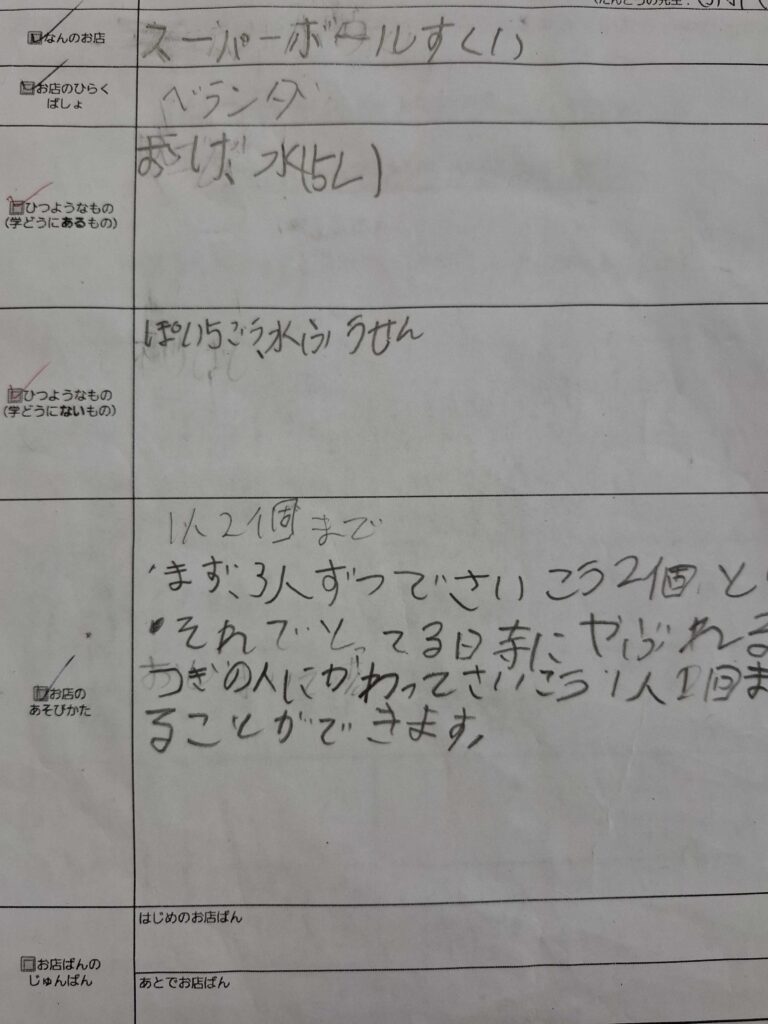 なんのお店
スーパーボールすくい
お店のひらく
ばしょ
ベランダ
ひつようなもの
(学どうにあるもの)
水(5L)
ひつようなもの
(学どうにないもの)
ぽい5ごう、水ふうせん
お店の
あそびかた
1人2個まで
まず、3人ずつでさいこう2個と
・それでとってる時にやぶれる
つぎの人にがわってさいこう1人2回ま
ることができます。
お店ばんの
じゅんばん
はじめのお店ばん
あとでお店ばん